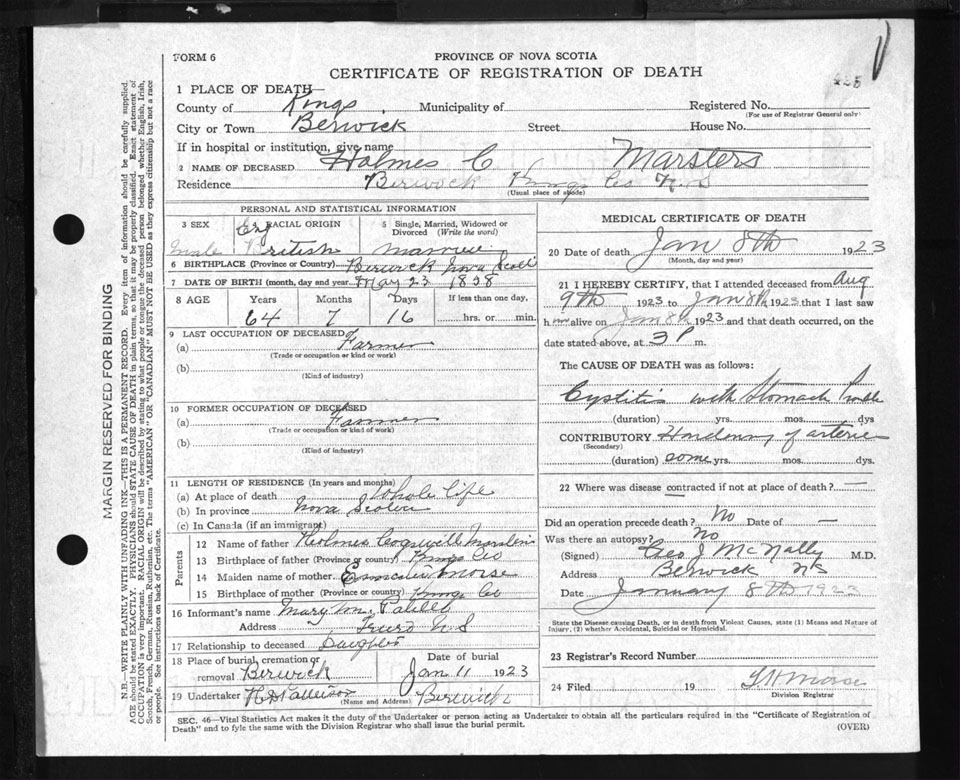 FORM 6
PROVINCE OF NOVA SCOTIA
CERTIFICATE OF REGISTRATION OF DEATH
1 PLACE OF DEATH—
County of Kings Municipality of Registered No.
(For use of Registrar General only)
City or Town Berwick Street House No.
If in hospital or institution, give name
2 NAME OF DECEASED Holmes C Marsters
Residence Berwick Kings Co N.S
(Usual place of abode)
PERSONAL AND STATISTICAL INFORMATION
3 SEX Male
4 RACIAL ORIGIN Eng British
5 Single, Married, Widowed or Divorced (Write the word)
6 BIRTHPLACE (Province or Country) Berwick Nova Scoti
7 DATE OF BIRTH (month, day and year May 23 1858
8 AGE Years Months Days If less than one day,
64 7 16 hrs. or min.
9 LAST OCCUPATION OF DECEASED
(a) Farmer
(Trade or occupation or kind of work)
(b)
(Kind of industry)
10 FORMER OCCUPATION OF DECEASED
(a) Farmer
(Trade or occupation or kind of work)
(b)
(Kind of industry)
11 LENGTH OF RESIDENCE (In years and months)
(a) At place of death Whole life
(b) In province Nova Scotia
(c) In Canada (if an immigrant)
Parents
12 Name of father Holmes Cogswell Marsters
13 Birthplace of father (Province or country) Kings Co
14 Maiden name of mother Morse
15 Birthplace of mother (Province or country) Kings Co
16 Informant's name Mary M.
Address Truro N S
17 Relationship to deceased Daughter
18 Place of burial, cremation or removal Berwick
Date of burial Jan 11 1923
19 Undertaker Berwick
(Name and Address)
MEDICAL CERTIFICATE OF DEATH
20 Date of death Jan 8th 1923
(Month, day and year)
21 I HEREBY CERTIFY, that I attended deceased from Aug
9th 1923 to Jan 8th 1923 that I last saw
h alive on Jan 8th 1923 and that death occurred, on the
date stated above, at 3 P m.
The CAUSE OF DEATH was as follows:
Cystitis with Stomach trouble
(duration) yrs. mos. dys
CONTRIBUTORY Hardening of arterie
(Secondary)
(duration) some yrs. mos. dys.
22 Where was disease contracted if not at place of death? —
Did an operation precede death? No Date of —
Was there an autopsy? No
(Signed) Geo J McNally M.D.
Address Berwick NS
Date January 8th 1923
State the Disease causing Death, or in death from Violent Causes, state (1) Means and Nature of
Injury, (2) whether Accidental, Suicidal or Homicidal.
23 Registrar's Record Number
24 Filed 19 Morse
Division Registrar
SEC. 46—Vital Statistics Act makes it the duty of the Undertaker or person acting as Undertaker to obtain all the particulars required in the "Certificate of Registration of
Death" and to fyle the same with the Division Registrar who shall issue the burial permit. (OVER)
MARGIN RESERVED FOR BINDING
N.B.—WRITE PLAINLY WITH UNFADING INK—THIS IS A PERMANENT RECORD. Every item of information should be carefully supplied.
AGE should be stated EXACTLY. PHYSICIANS should STATE CAUSE OF DEATH in plain terms, so that it may be properly classified. Exact statement of
OCCUPATION is very important. RACIAL ORIGIN will be described by stating to what people or tongue the deceased person belonged whether English, Irish,
Scotch, French, German, Russian, Ruthenian, etc. The terms "AMERICAN" OR "CANADIAN" MUST NOT BE USED as they express citizenship but not a race
or people. See instructions on back of Certificate.